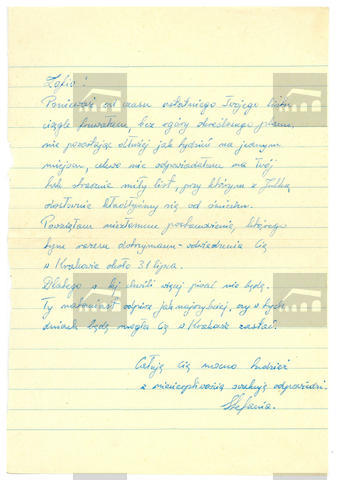 Zofio!
Ponieważ od czasu ostatniego Twojego listu
ciągle fruwałam, bez z góry określonego planu,
nie pozostając dłużej jak tydzień na jednym
miejscu, celowo nie odpowiadałam na Twój
tak strasznie miły list, przy którym z Julką
dosłownie kładłyśmy się od śmiechu.
Powzięłam niezłomne postanowienie, którego
tym razem dotrzymam - odwiedzenia Cię
w Krakowie około 31 lipca.
Dlatego w tej chwili więcej pisać nie będę.
Ty natomiast odpisz jak najszybciej, czy w tych
dniach będę mogła Cię w Krakowie zastać.
Całuję Cię mocno
z niecierpliwością czekając odpowiedzi.
Stefania.